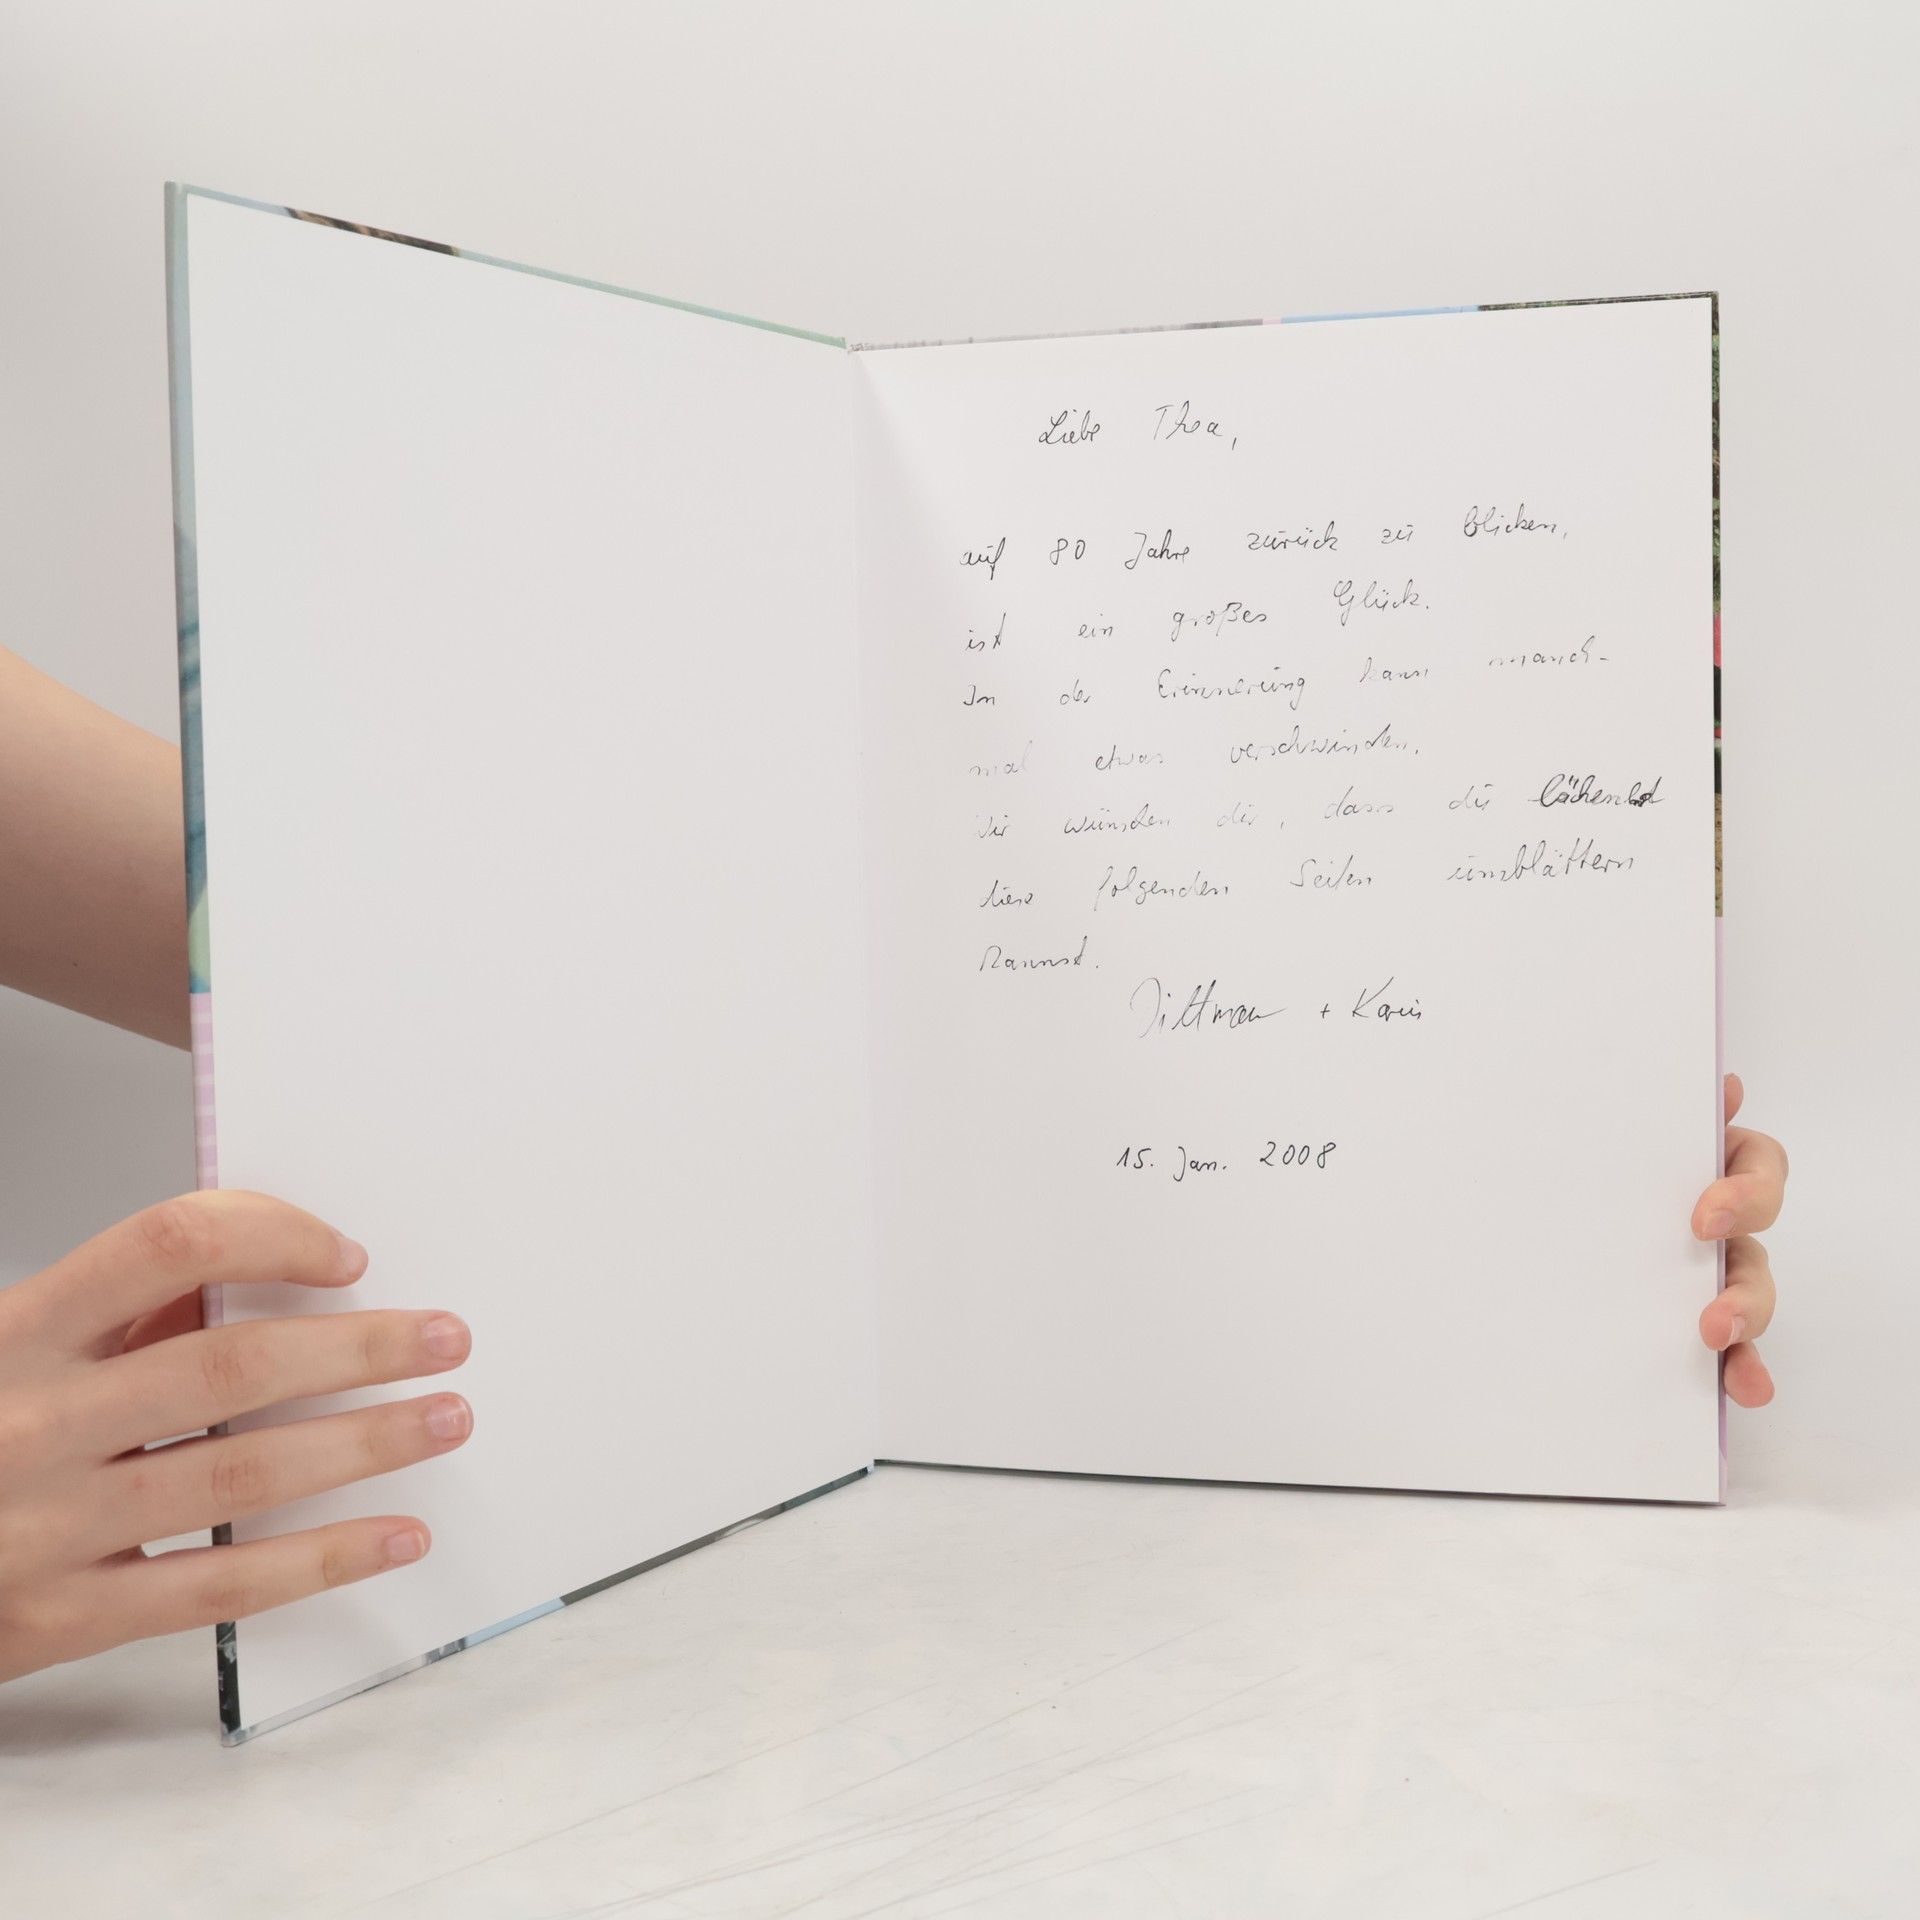 Liebe Thea,
auf 80 Jahre zurück zu blicken,
ist ein großes Glück.
In der Erinnerung kann manch-
mal etwas verschwinden.
Wir wünschen dir, dass du
diese folgenden Seiten umblättern
kannst.
Dittmar + Karin
15. Jan. 2008